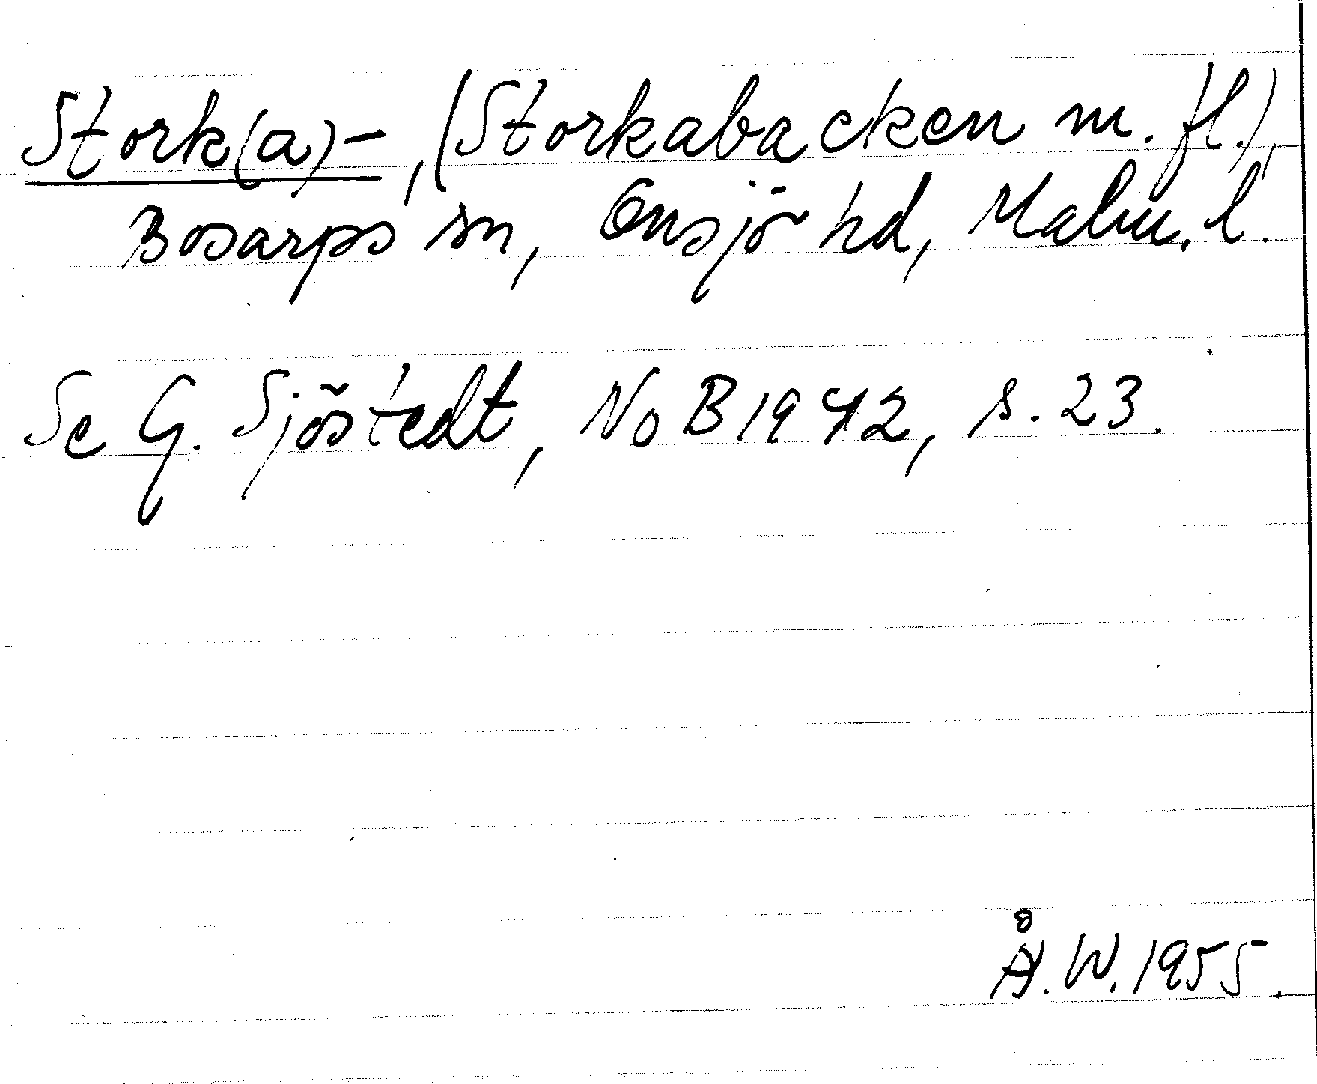 Stork(a)-, (Storkabacken m. fl.),
Bosarps sn, Onsjö hd, Malm. l.
Se G. Sjöstedt, NoB 1942, s. 23.
Å. W. 1955.